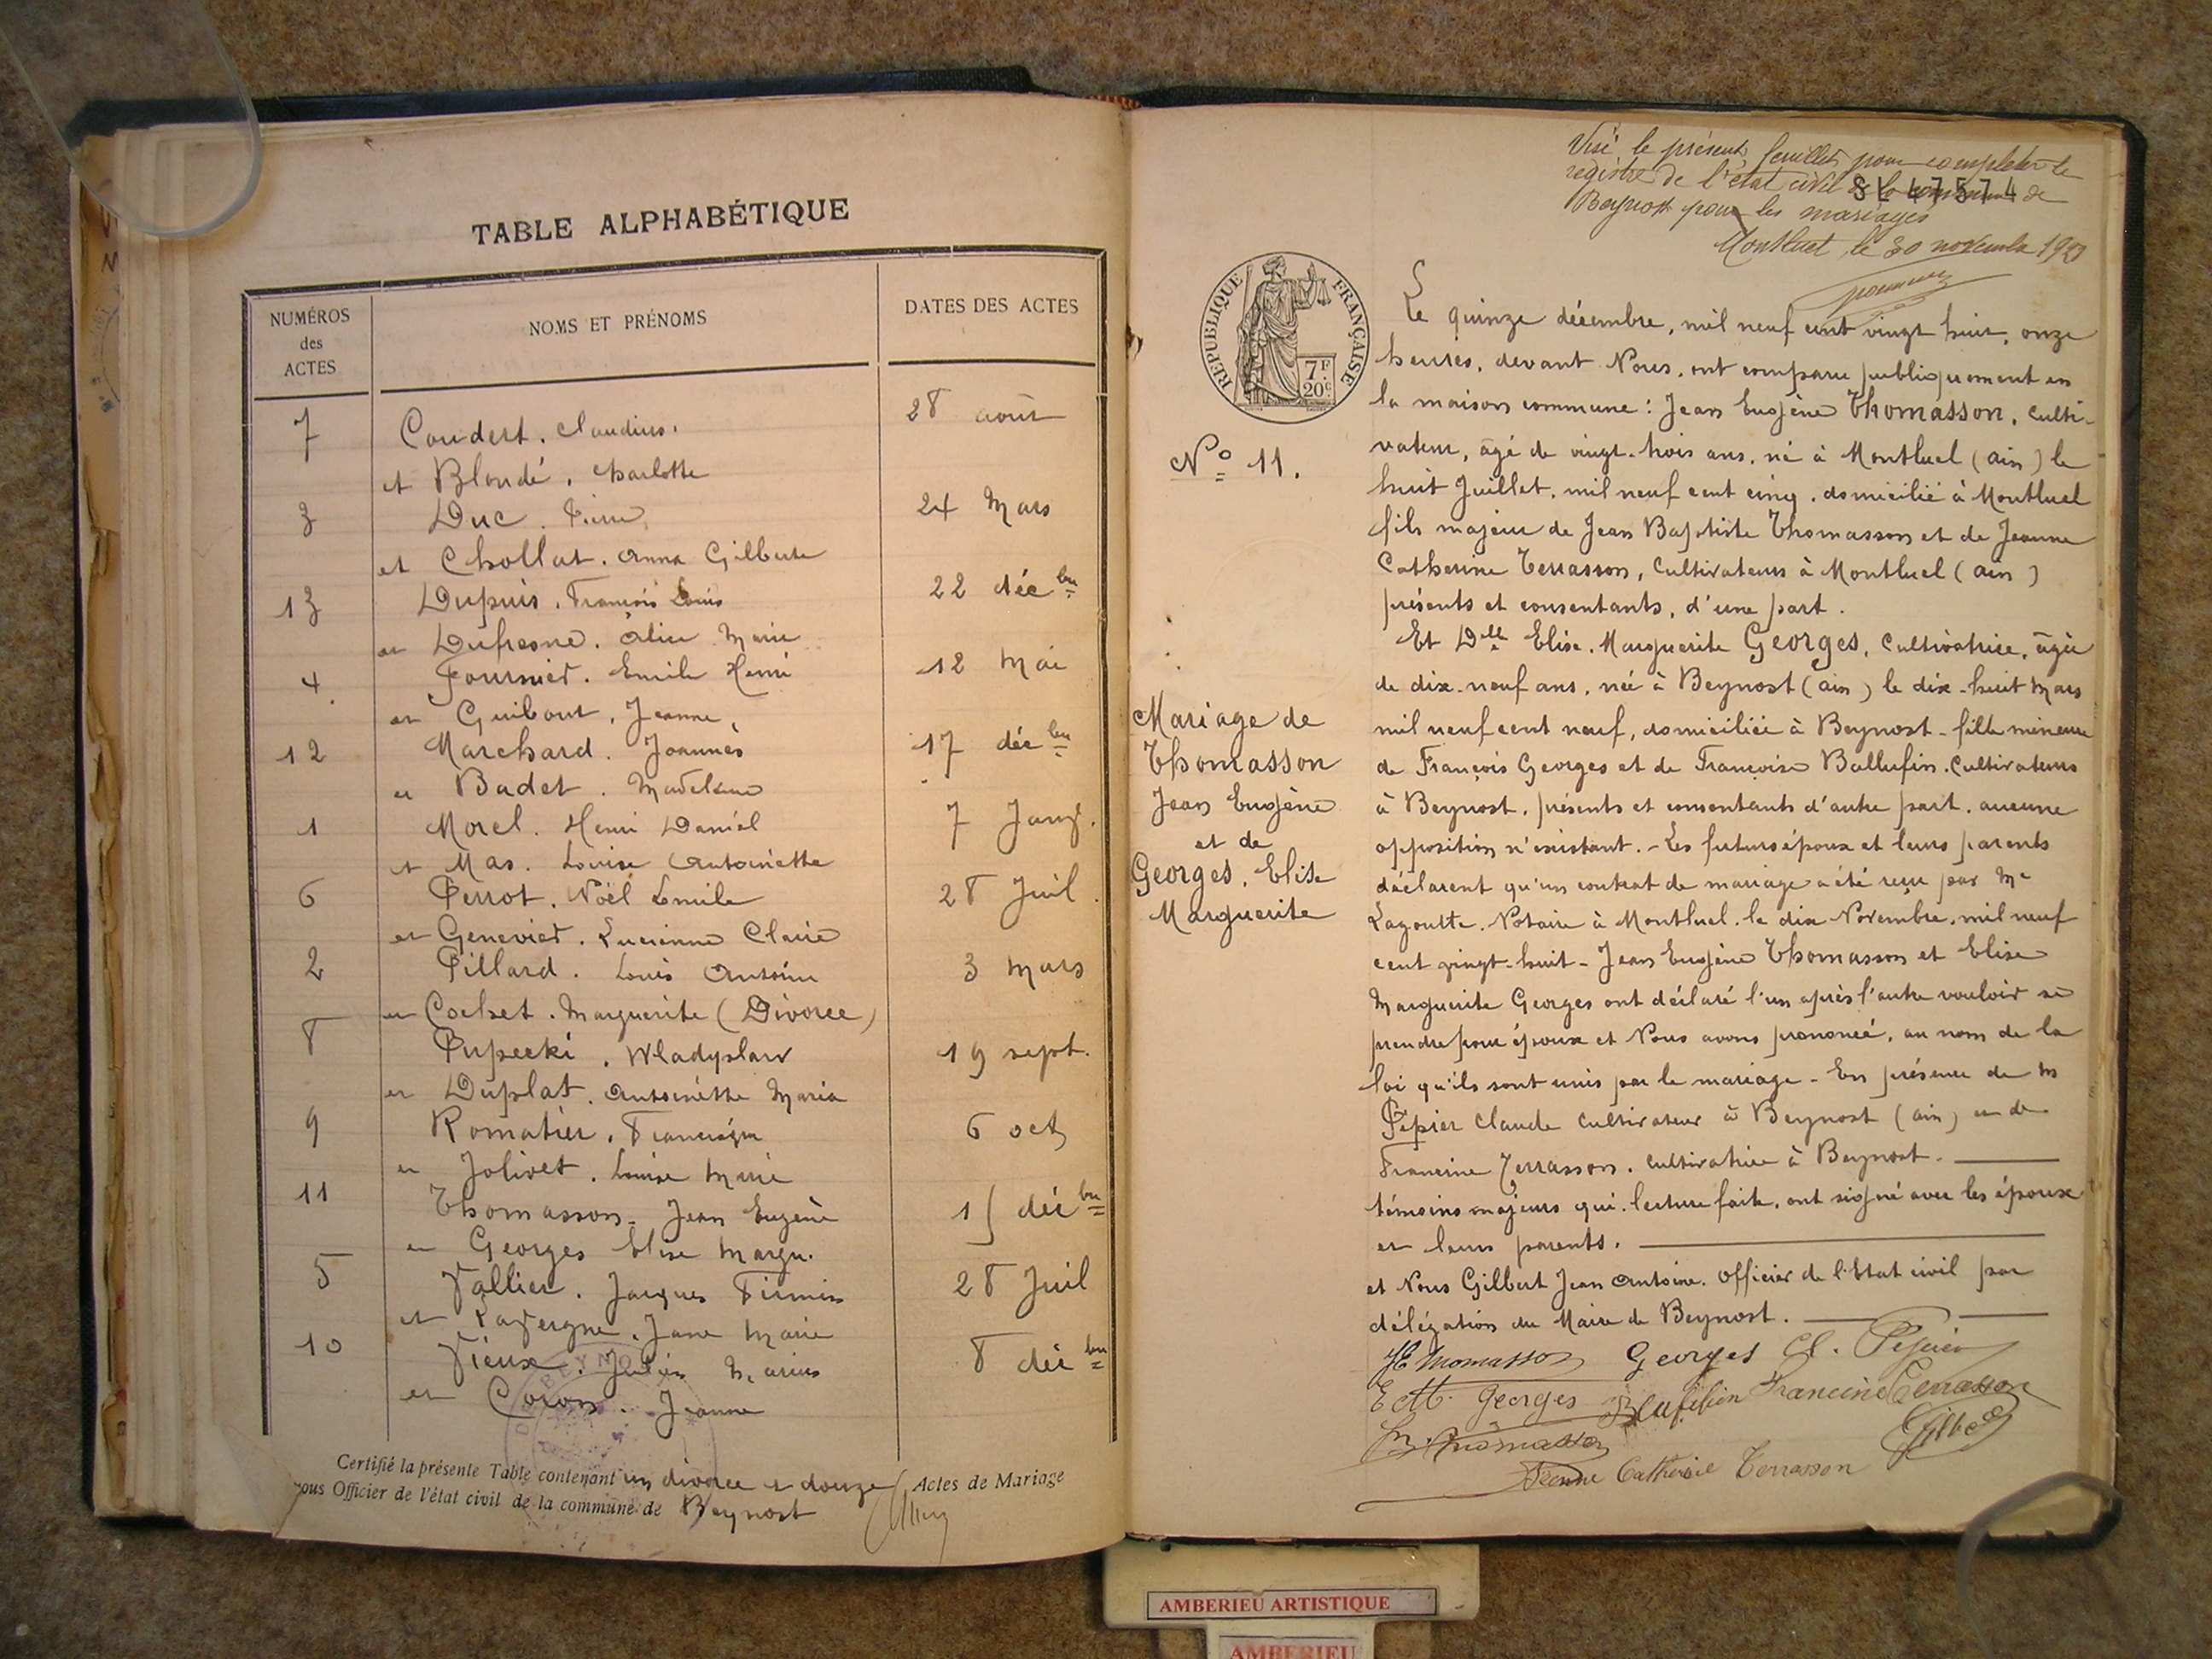 TABLE ALPHABÉTIQUE
NUMÉROS
des
ACTES
NOMS ET PRÉNOMS
DATES DES ACTES
7 Coudert. Claudius. 28 août
et Blondé. Charlotte
3 Duc. Pierre 24 Mars
et Chollat. Anna Gilberte
13 Dupuis. François Louis 22 déc bre
et Dufresne. Alice Marie
4 Fournier. Emile Henri 12 Mai
et Guibout, Jeanne.
12 Marchard. Joannès 17 déc bre
et Badet. Madeleine
1 Morel. Henri Daniel 7 Janv.
et Mas. Louise Antoinette
6 Perrot. Noël Emile 28 Juil.
et Genevier. Lucienne Claire
2 Pillard. Louis Antoine 3 mars
et Cochet. Marguerite (Divorce)
8 Pupecki. Wladyslaw 19 sept.
et Duplat. Antoinette Maria
9 Romatier. 6 oct
et Jolivet. Louise Marie
11 Thomasson. Jean Eugène 15 déc bre
et Georges Elise Margu.
5 Vallier. Jacques Firmin 28 Juil
et Lavergne. Jane Marie
10 Vieux. Julien Marius 8 déc bre
et Coron. Jeanne
Certifié la présente Table contenant un divorce et douze Actes de Mariage
nous Officier de l'état civil de la commune de Beynost
Visé le présent feuillet pour compléter le
registre de l'état civil de la commune de
8L 47574
Beynost pour les mariages
Montluel, le 30 novembre 1928
RÉPUBLIQUE FRANÇAISE
7F
20c
No 11.
Mariage de
Thomasson
Jean Eugène
et de
Georges. Elise
Marguerite
Le quinze décembre, mil neuf cent vingt huit, onze
heures, devant Nous, ont comparu publiquement en
la maison commune : Jean Eugène Thomasson, culti-
vateur, âgé de vingt-trois ans, né à Montluel (Ain) le
huit Juillet, mil neuf cent cinq, domicilié à Montluel
fils majeur de Jean Baptiste Thomasson et de Jeanne
Catherine Terrasson, Cultivateurs à Montluel (Ain)
présents et consentants, d'une part.
Et Delle Elise. Marguerite Georges, Cultivatrice, âgée
de dix-neuf ans, née à Beynost (Ain) le dix-huit Mars
mil neuf cent neuf, domiciliée à Beynost - fille mineure
de François Georges et de Françoise Ballufin. Cultivateurs
à Beynost, présents et consentants d'autre part. aucune
opposition n'existant. - Les futurs époux et leurs parents
déclarent qu'un contrat de mariage a été reçu par Me
Lagoutte. Notaire à Montluel. le dix Novembre. mil neuf
cent vingt-huit - Jean Eugène Thomasson et Elise
Marguerite Georges ont déclaré l'un après l'autre vouloir se
prendre pour époux et Nous avons prononcé, au nom de la
loi qu'ils sont unis par le mariage - En présence de M
Pépier Claude Cultivateur à Beynost (Ain) et de
Francine Terrasson. Cultivatrice à Beynost.
témoins majeurs qui, lecture faite, ont signé avec les époux
et leurs parents.
et Nous Gilbert Jean Antoine. Officier de l'Etat civil par
délégation du Maire de Beynost.
JE Thomasson Georges Cl. Pepier
E M. Georges Francine Terrasson
Thomasson Gilbert
Jeanne Catherine Terrasson
AMBERIEU ARTISTIQUE
AMBERIEU